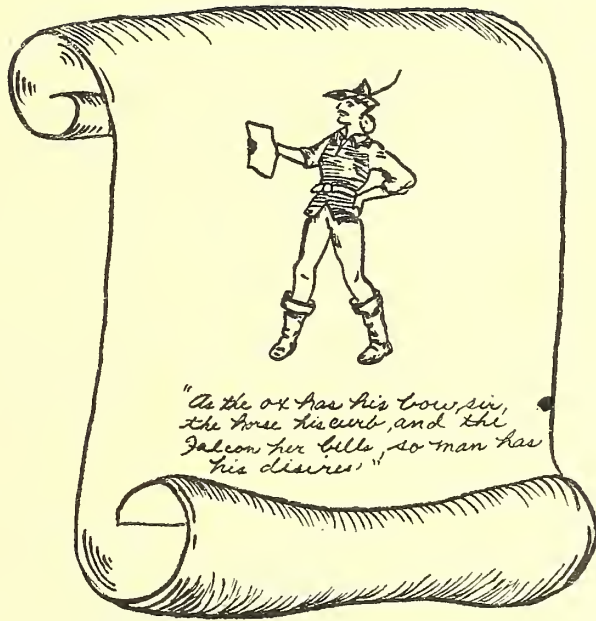 "As the ox has his bow, sir,
the horse his curb, and the
Falcon her bells, so man has
his disires."